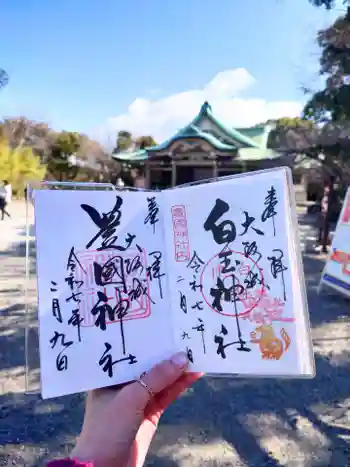 奉拝
大阪城
白玉神社
令和七年
二月九日
豊國神社
奉拝
大阪城
豊國神社
令和七年
二月九日